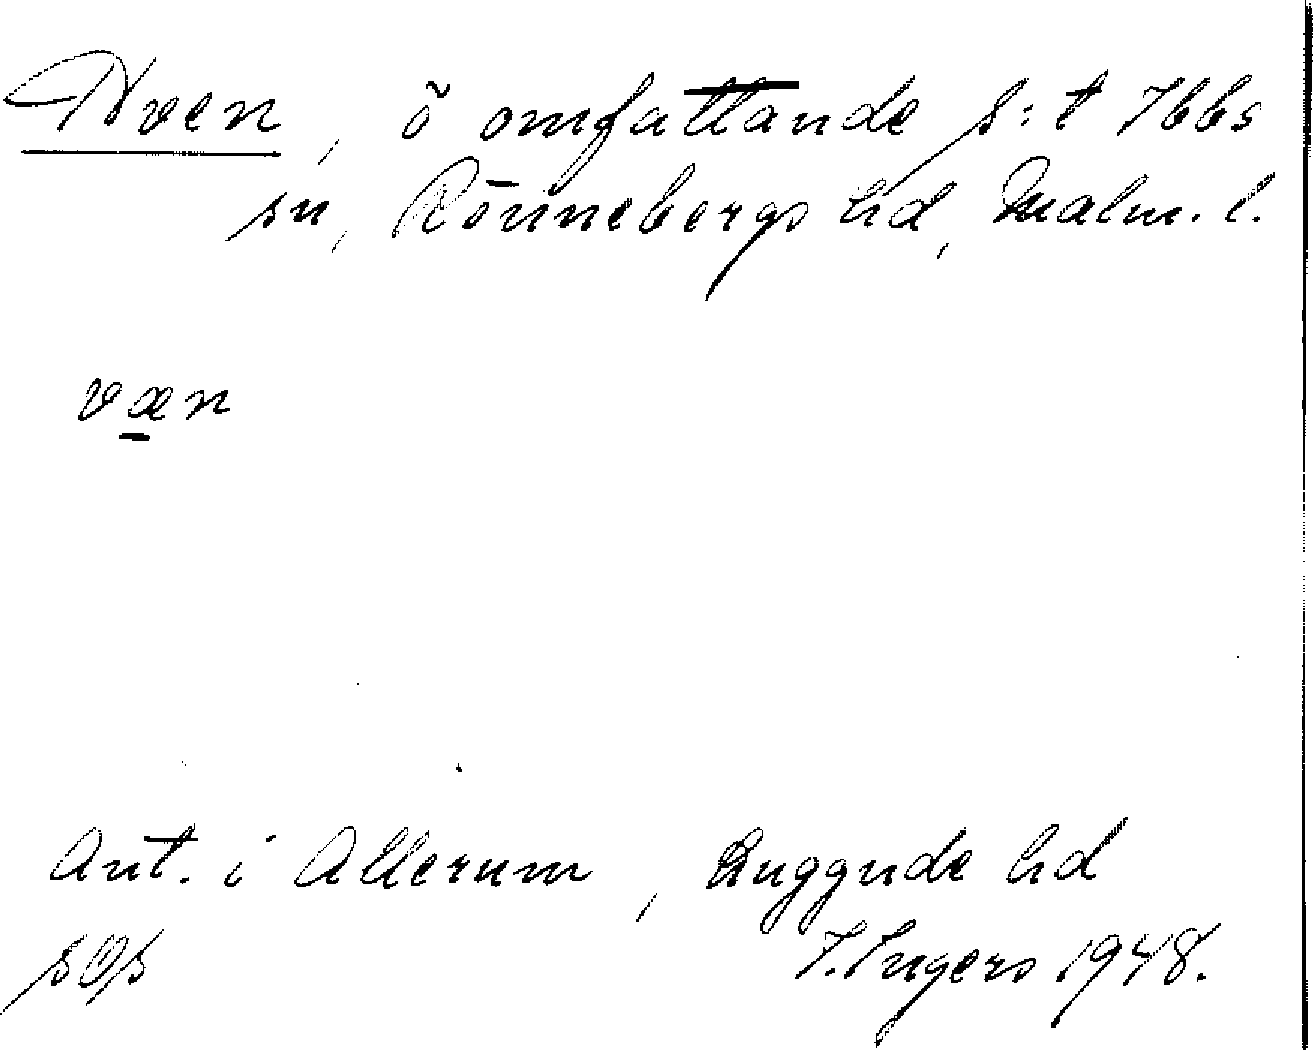 Hven, ö omfattande S:t Ibbs
sn, Rönnebergs hd, Malm. l.
væn
Ant. i Allerum, Luggude hd
I. Ingers 1948.